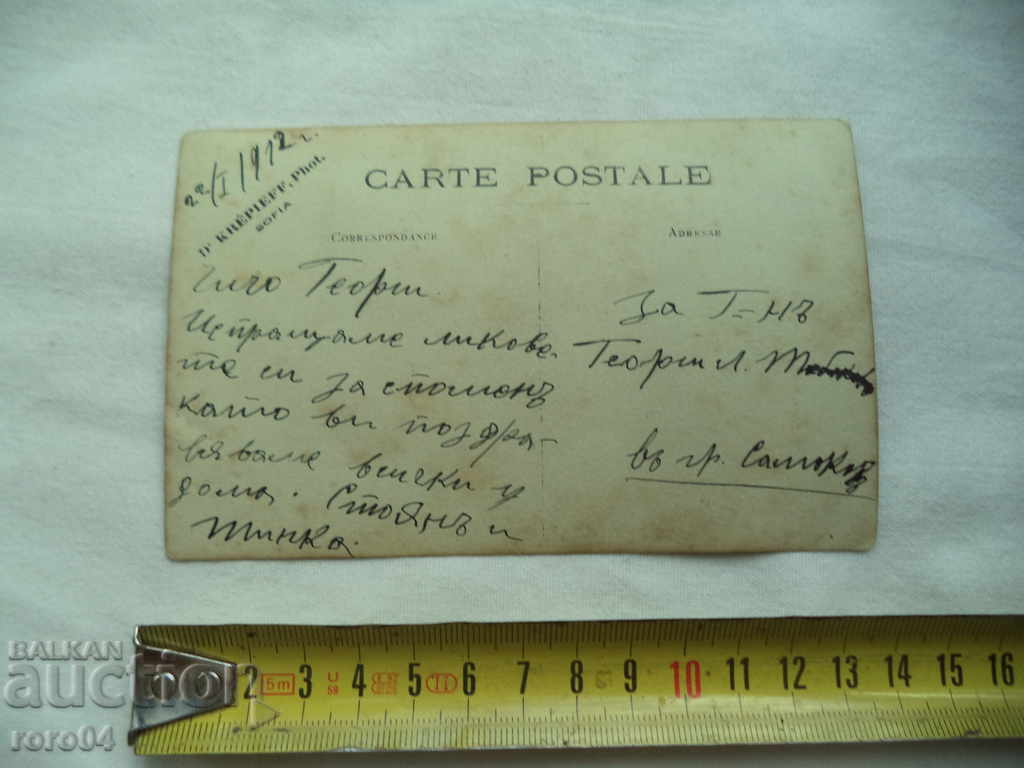 22/I 1912 г.
Dr KRÉPIEFF, Phot.
SOFIA
CARTE POSTALE
CORRESPONDANCE
ADRESSE
Чичо Георги.
Испращаме ликове-
те си за споменъ
като ви поздра-
вяваме всички у
дома. Стоянъ и
Тинка.
За Г-нъ
Георги Л.
въ гр. Самоковъ
2 3 4 5 6 7 8 9 10 11 12 13 14 15 16
5m
BALKAN
auctio
roro04